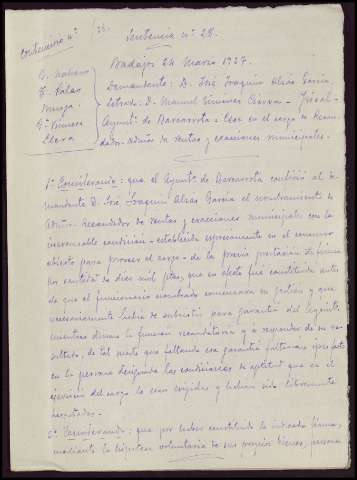 Contencioso nº /36.
Sentencia nº 28.
Badajoz 24 Marzo 1937.
Demandante: D. José Joaquin Alias Garcia
Letrado: D. Manuel Gimenez Cierva - Fiscal -
Ayuntº de Barcarrota: Cese en el cargo de Recau-
dador-admor de rentas y exacciones municipales.
1º Considerando: que el Ayuntº de Barcarrota confirió al de-
mandante D. José Joaquin Alias Garcia el nombramiento de
Admor-recaudador de rentas y exacciones municipales con la
inexcusable condición - establecida expresamente en el concurso
abierto para proveer el cargo - de la previa prestación de fianza
por cantidad de diez mil ptas, que en efecto fue constituida antes
de que el funcionario nombrado comenzara su gestión y que
necesariamente habia de subsistir para garantia del Ayuntº
mientras durara la función recaudatoria y a responder de su re-
sultado, de tal suerte que faltando esa garantia faltarian
en la persona designada las condiciones de aptitud que en el
ejercicio del cargo le eran exigidas y habian sido libremente
aceptadas.
2º Considerando: que por haber constituido la indicada fianza,
mediante la hipoteca voluntaria de sus propios bienes, persona